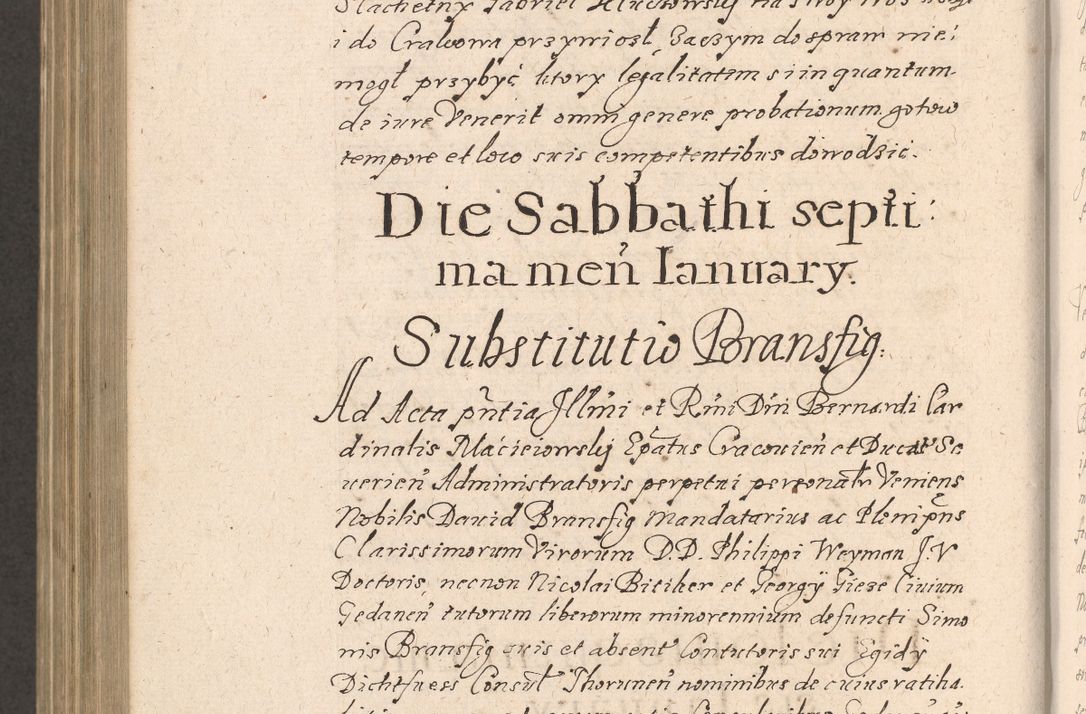 i do Cralwowa przywiosł, Zaczym do spraw nie:
mogł przybyć ktory legalitatem si in quantum
de iure Venerit omni genere probationum gotow
tempore et loco suis competentibus dowodzić.
Die Sabbathi septi:
ma men̄ Ianuary.
Substitutio Bransfig:
Ad Acta pn̄tia Illm̄i et Rm̄i Dn̄i Bernardi Car
dinalis Macieiowskÿ Epatus Cracouien̄ et Ducat Se
uerien̄ Administratoris perpetui personalr Veniens
Nobilis Dauid Bransfig Mandatarius ac Plenipn̄s
Clarissimorum Virorum D.D. Philippi Weyman J.V
Doctoris, necnon Nicolai Bitiker et Georgÿ Giese Ciuium
Gedanen̄ tutorum liberorum minorennium defuncti Simo
nis Bransfig suis et absent Contutoris sui Egidÿ
Dichtfuess Consul Thorunen̄ nominibus de cuius ratiha.